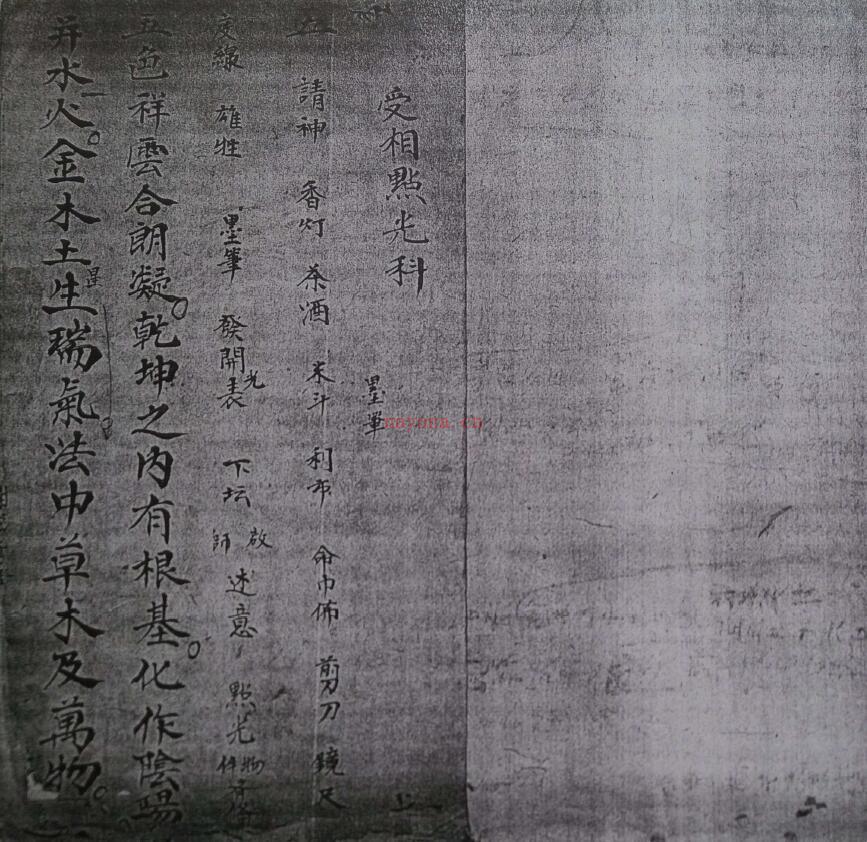 受相點光科
墨筆
請神 香灯 茶酒 米斗 利市 命巾佈 剪刀 鏡 尺
度線 雄牲 墨筆 發開光表 下坛 啟師 述意 點光 物件齐俻
五色祥雲合朗凝。乾坤之内有根基。化作陰陽
并水火。金木土星生瑞氣。法中草木及萬物。
nayona.cn